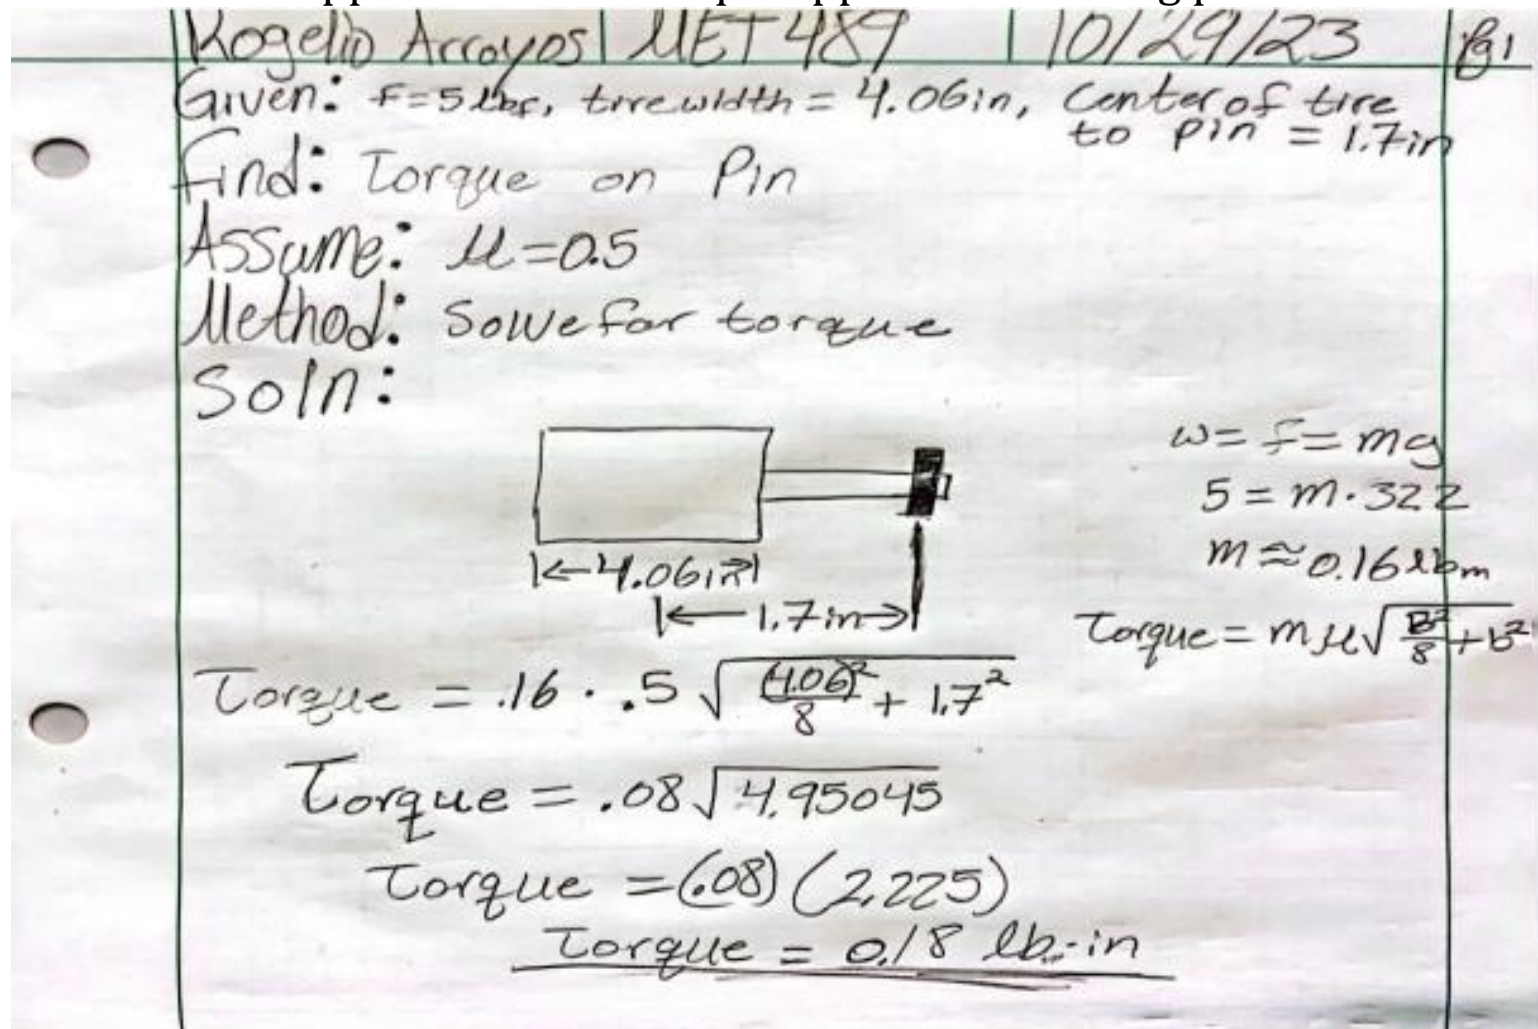 Rogelio Arroyos | MET 489 | 10/29/23 | Pg1
Given: F=5 lbf, tire width = 4.06in, Center of tire
to pin = 1.7in
Find: Torque on Pin
Assume: μ=0.5
Method: Solve for torque
Soln:
w = F = mg
5 = m · 32.2
m ≈ 0.16 lbm
|←4.06in→|
|← 1.7in→|
Torque = mμ√(B²/8 + b²)
Torque = .16 · .5 √((4.06)²/8 + 1.7²)
Torque = .08 √4.95045
Torque = (.08) (2.225)
Torque = 0.18 lb-in